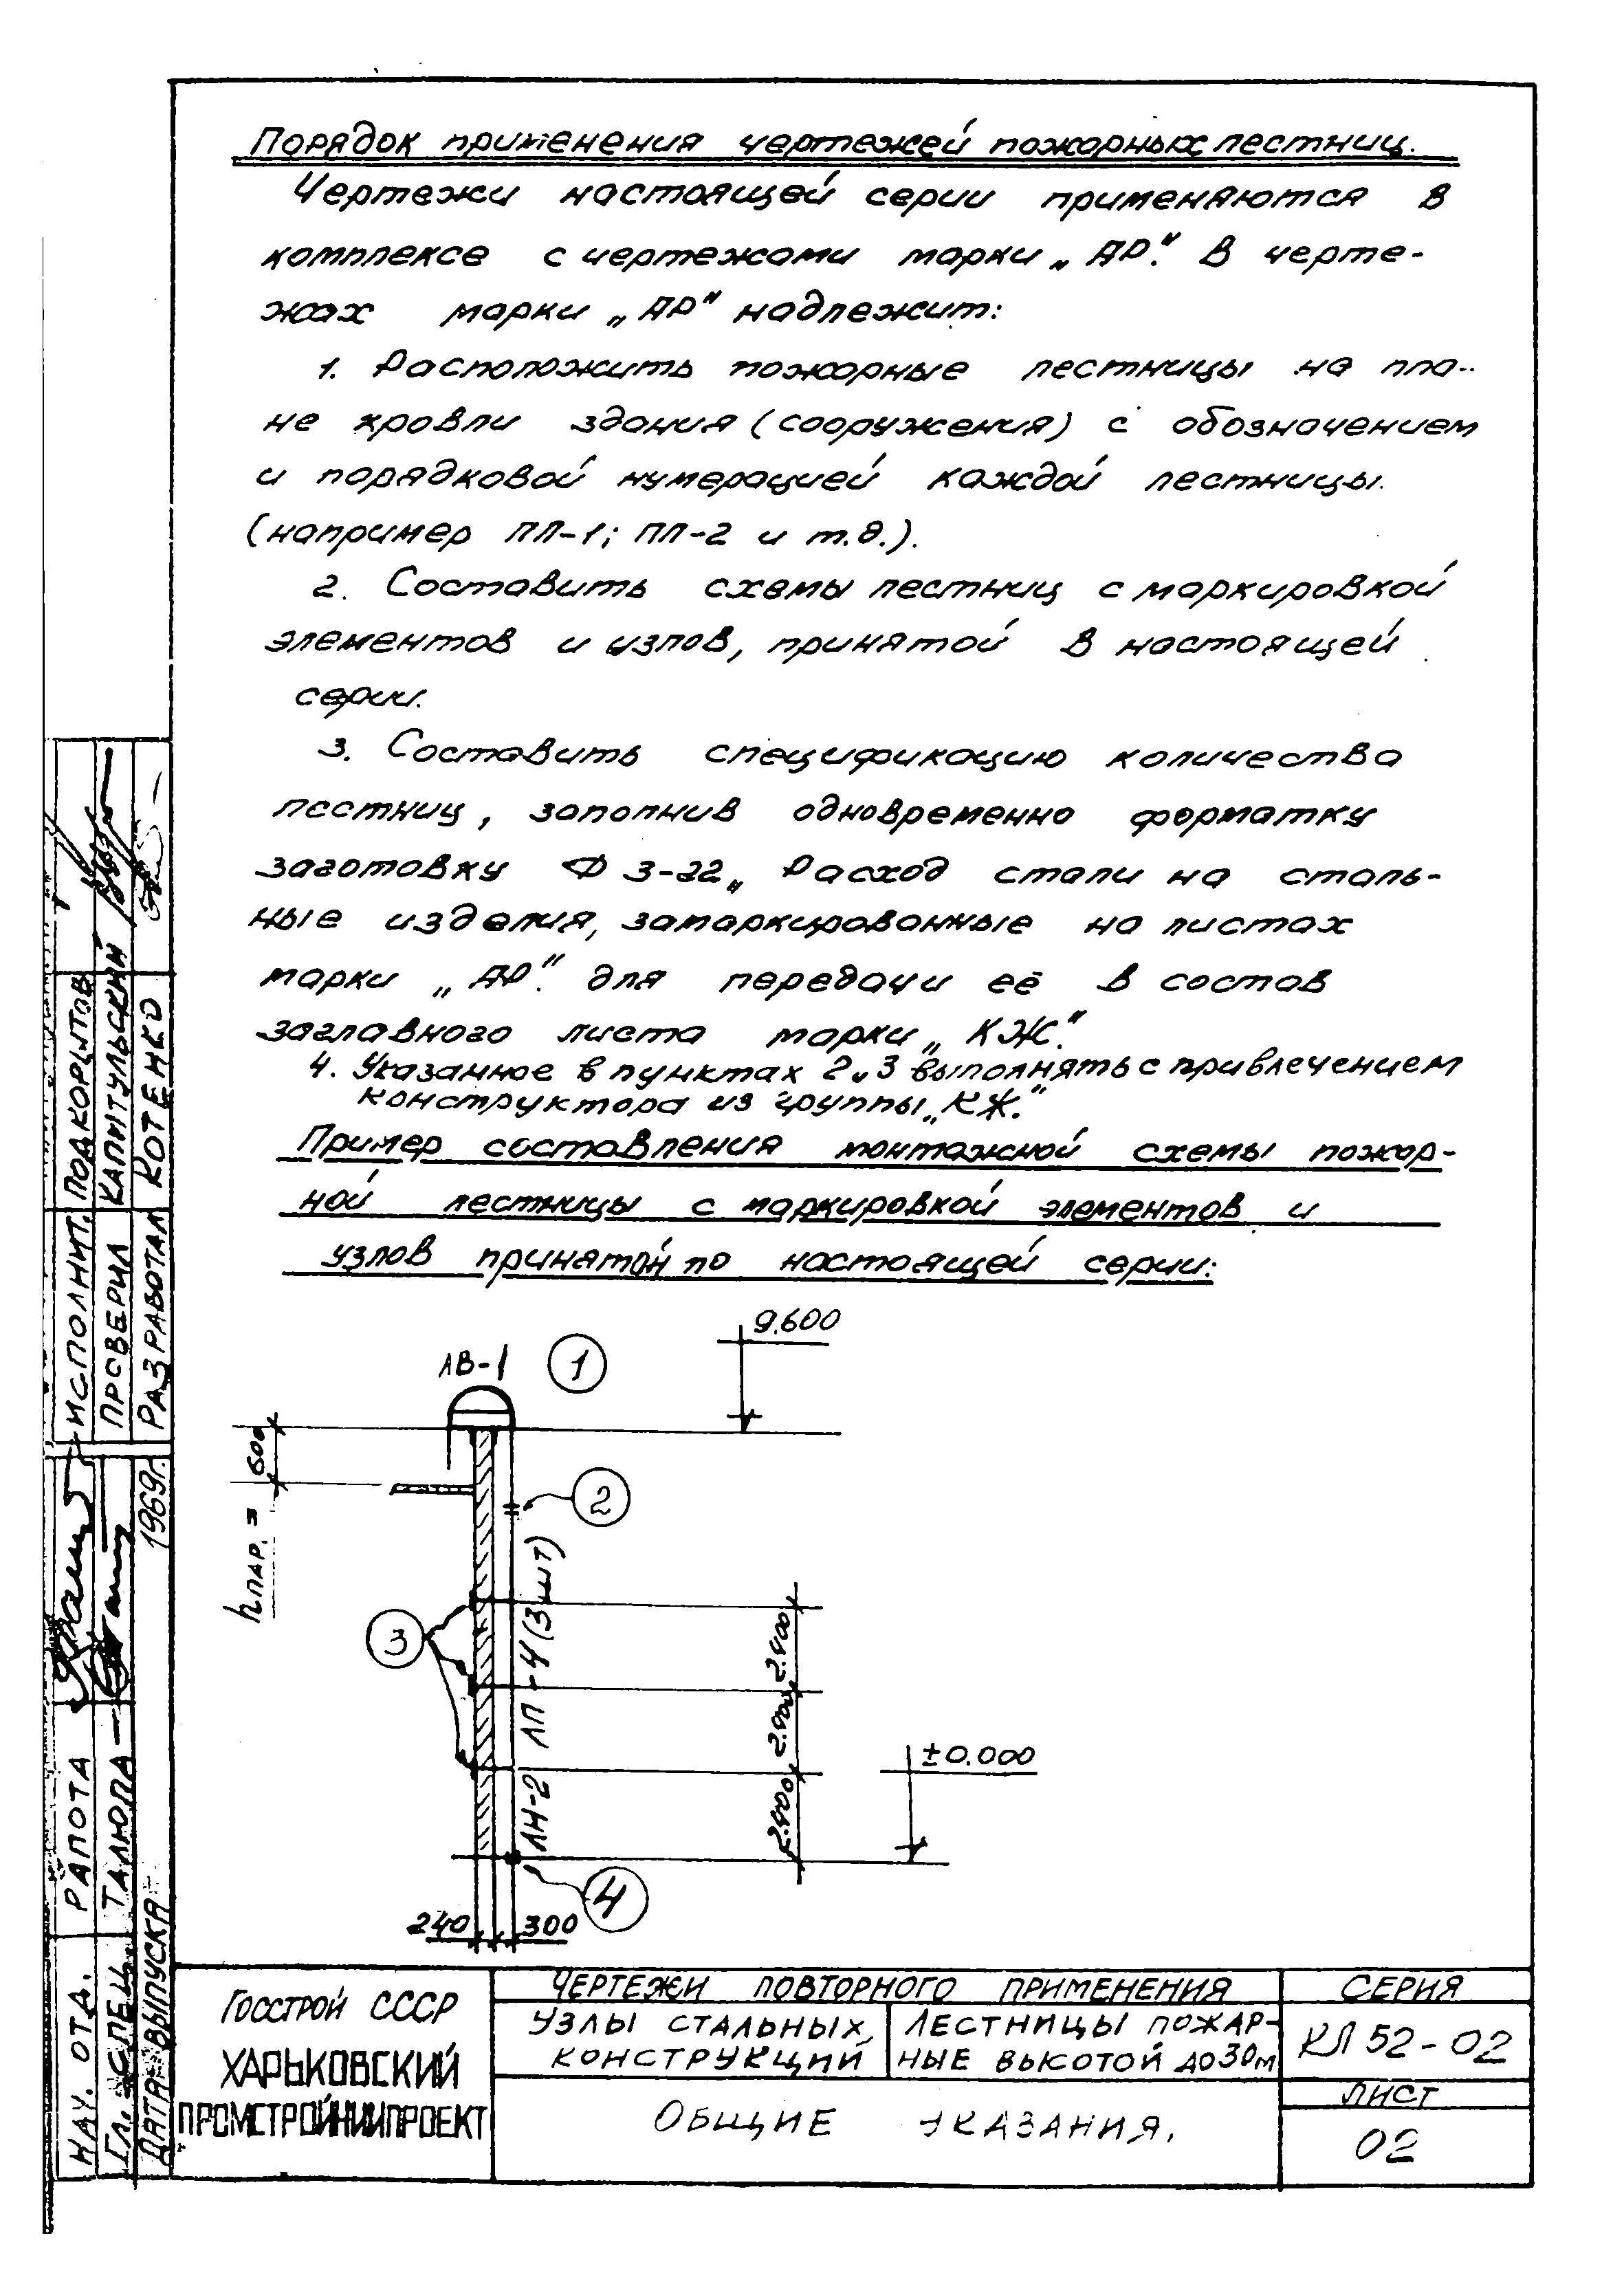 Порядок применения чертежей пожарных лестниц.
Чертежи настоящей серии применяются в
комплексе с чертежами марки „АР". В черте-
жах марки „АР" надлежит:
1. Расположить пожарные лестницы на пла-
не кровли здания (сооружения) с обозначением
и порядковой нумерацией каждой лестницы.
(например ПЛ-1; ПЛ-2 и т.д.).
2. Составить схемы лестниц с маркировкой
элементов и узлов, принятой в настоящей
серии.
3. Составить спецификацию количества
лестниц, заполнив одновременно форматку
заготовку Ф 3-22 „Расход стали на сталь-
ные изделия, замаркированные на листах
марки „АР". для передачи её в состав
заглавного листа марки „КЖ".
4. Указанное в пунктах 2и3 выполнять с привлечением
конструктора из группы „КЖ."
Пример составления монтажной схемы пожар-
ной лестницы с маркировкой элементов и
узлов принятой по настоящей серии:
9.600
ЛВ-1 1
600
hпар. =
2
3
ЛП-4 (3 шт)
2.400
2.400
2.400
±0.000
ЛН-2
4
240 300
Госстрой СССР
Харьковский
Промстройниипроект
Чертежи повторного применения
Узлы стальных
конструкций
Лестницы пожар-
ные высотой до 30м
Общие указания.
Серия
КЛ 52-02
Лист
02
Исполнит. Подкорытов
Проверил Капитульский
Разработал Котенко
Нач. отд. Рапота
Гл. спец. Талюпа
Дата выпуска 1969г.